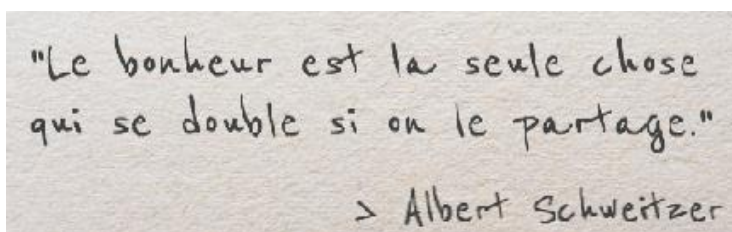 "Le bonheur est la seule chose
qui se double si on le partage."
> Albert Schweitzer